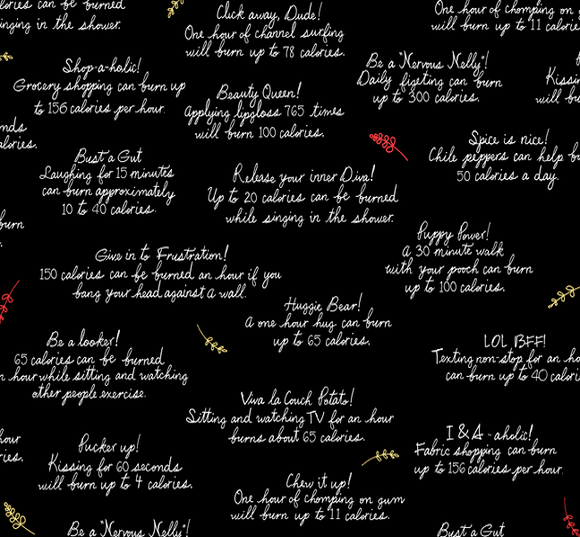 ories can be burned
inging in the shower.
Click away, Dude!
One hour of channel surfing
will burn up to 78 calories.
One hour of chomping on
will burn up to 11 calorie
Shop-a-holic!
Grocery shopping can burn up
to 156 calories per hour.
Be a "Nervous Nelly"!
Daily figeting can burn
up to 300 calories.
Kissin
will bu
Beauty Queen!
Applying lipgloss 765 times
will burn 100 calories.
nds
alories.
Spice is nice!
Chile peppers can help b
50 calories a day.
Bust a Gut
Laughing for 15 minutes
can burn approximately
10 to 40 calories.
Release your inner Diva!
Up to 20 calories can be burned
while singing in the shower.
burn
Puppy Power!
a 30 minute walk
with your pooch can burn
up to 100 calories.
Give in to Frustration!
150 calories can be burned an hour if you
bang your head against a wall.
Huggie Bear!
A one hour hug can burn
up to 65 calories.
Be a looker!
65 calories can be burned
n hour while sitting and watching
other people exercise.
LOL BFF!
Texting non-stop for an ho
can burn up to 40 calori
Viva la Couch Potato!
Sitting and watching TV for an hour
burns about 65 calories.
hour
ries.
Pucker up!
Kissing for 60 seconds
will burn up to 4 calories.
I & A-aholic!
Fabric shopping can burn
up to 156 calories per hour.
Chew it up!
One hour of chomping on gum
will burn up to 11 calories.
Be a "Nervous Nelly"!
Bust a Gut